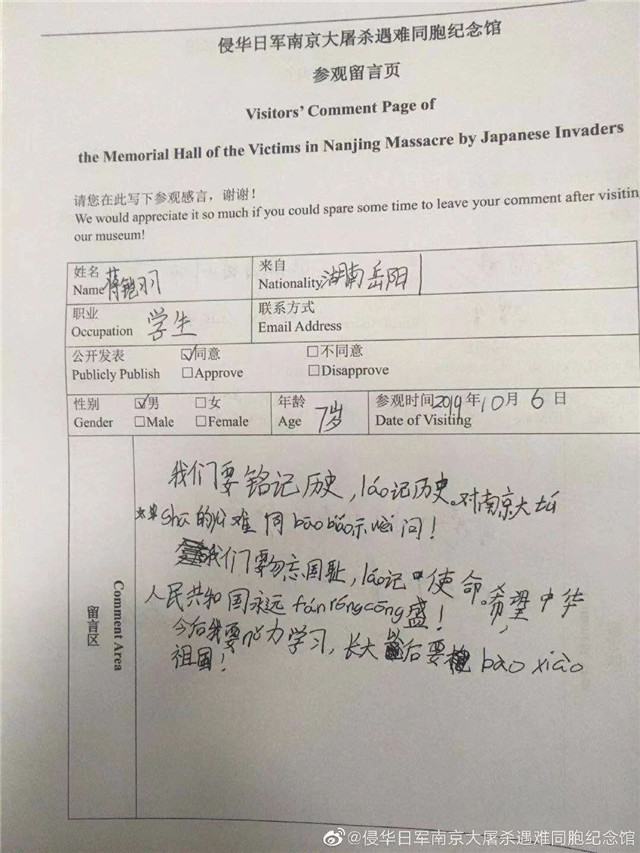 侵华日军南京大屠杀遇难同胞纪念馆
参观留言页
Visitors' Comment Page of
the Memorial Hall of the Victims in Nanjing Massacre by Japanese Invaders
请您在此写下参观感言，谢谢！
We would appreciate it so much if you could spare some time to leave your comment after visitin
our museum!
姓名 来自
Name 蒋 羽 Nationality 湖南岳阳
职业 联系方式
Occupation 学生 Email Address
公开发表 ☑同意 □不同意
Publicly Publish □Approve □Disapprove
性别 ☑男 □女 年龄 参观时间2019年10月6日
Gender □Male □Female Age 7岁 Date of Visiting
留言区 Comment Area
我们要铭记历史，láo记历史。对南京大
sha的 难同bāo 示 问！
我们要勿忘国耻，láo记使命。希望中华
人民共和国永远fánróngcōng盛！
今后我要 力学习，长大后要 bào xiào
祖国！
@侵华日军南京大屠杀遇难同胞纪念馆